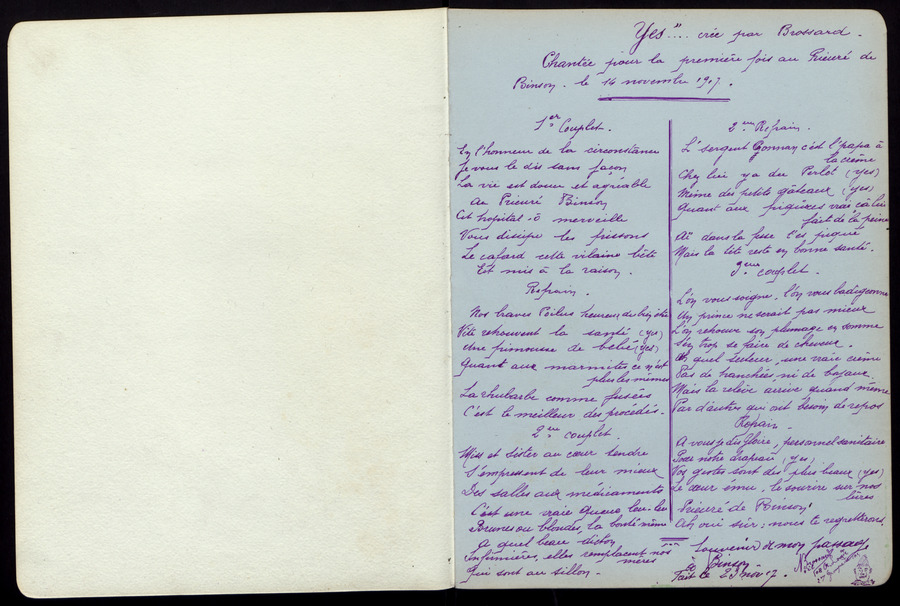 Yes".... crée par Brossard.
Chantée pour la première fois au Prieuré de
Binson. le 14 novembre 1917.
1er Couplet.
En l'honneur de la circonstance
Je vous le dis sans façon
La vie est douce et agréable
Au Prieuré Binson
Cet hopital ô merveille
Vous dissipe les frissons
Le cafard cette vilaine bête
Est mis à la raison.
Refrain.
Nos braves Poilus heureux de bien être
Vite retrouvent la santé (yes)
Une frimousse de bébé (yes)
Quant aux marmites ce n'est
plus les mêmes
La rhubarbe comme fusées
C'est le meilleur des procédés.
2me couplet.
Miss et Sister au cœur tendre
S'empressent de leur mieux
Des salles aux médicaments
C'est une vraie queue leu-leu
Brunes ou blondes, la bonté même
A quel beau dicton
Infirmières, elles remplacent nos
mères
Qui sont au sillon.
2me Refrain.
L' sergent c'est l' papa à
la crème
Chez lui ya du Perlet (yes)
Même des petits gâteaux (yes)
Quant aux piqûres vrai çà lui
fait de la peine
Aï dans la fesse t'es piqué
Mais la tête reste en bonne santé.
3me couplet.
L'on vous soigne, l'on vous badigeonne
Un prince ne serait pas mieux
L'on retrouve son plumage en somme
S'en trop se faire de cheveux.
quel secteur, une vraie crème
Pas de tranchées ni de boyaux
Mais la relève arrive quand même
Par d'autres qui ont besoin de repos
Refrain
A vous gloire, personnel sanitaire
Pour notre drapeau (yes)
Vos gestes sont des plus beaux (yes)
Le cœur ému, le sourire sur nos
lèvres
Prieuré de Binson!
Ah oui sûr: nous te regretterons.
Souvenir de mon passage
à Binson
Fait le 23 nov 17.